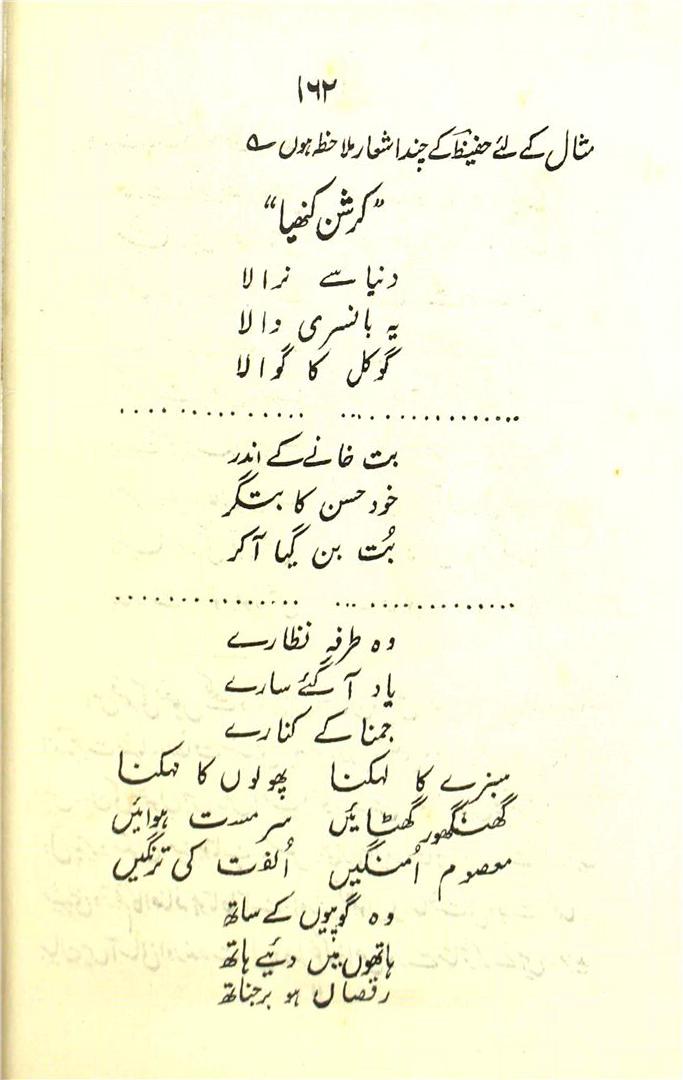 ۱۶۲
مثال کے لئے حفیظؔ کے چند اشعار ملاحظ ہوں ؎
”کرشن کنھیا“
دنیا سے نرالا
یہ بانسری والا
گوکل کا گوالا
...................................
بت خانے کے اندر
خود حسن کا بتگر
بُت بن گیا آکر
...................................
وہ طرفہ نظارے
یاد آگئے سارے
جمنا کے کنارے
سبزے کا لہکنا پھولوں کا مہکنا
گھنگھور گھٹائیں سرمست ہوائیں
معصوم اُمنگیں اُلفت کی ترنگیں
وہ گوپیوں کے ساتھ
ہاتھوں میں دئیے ہاتھ
رقصاں ہو برجناتھ